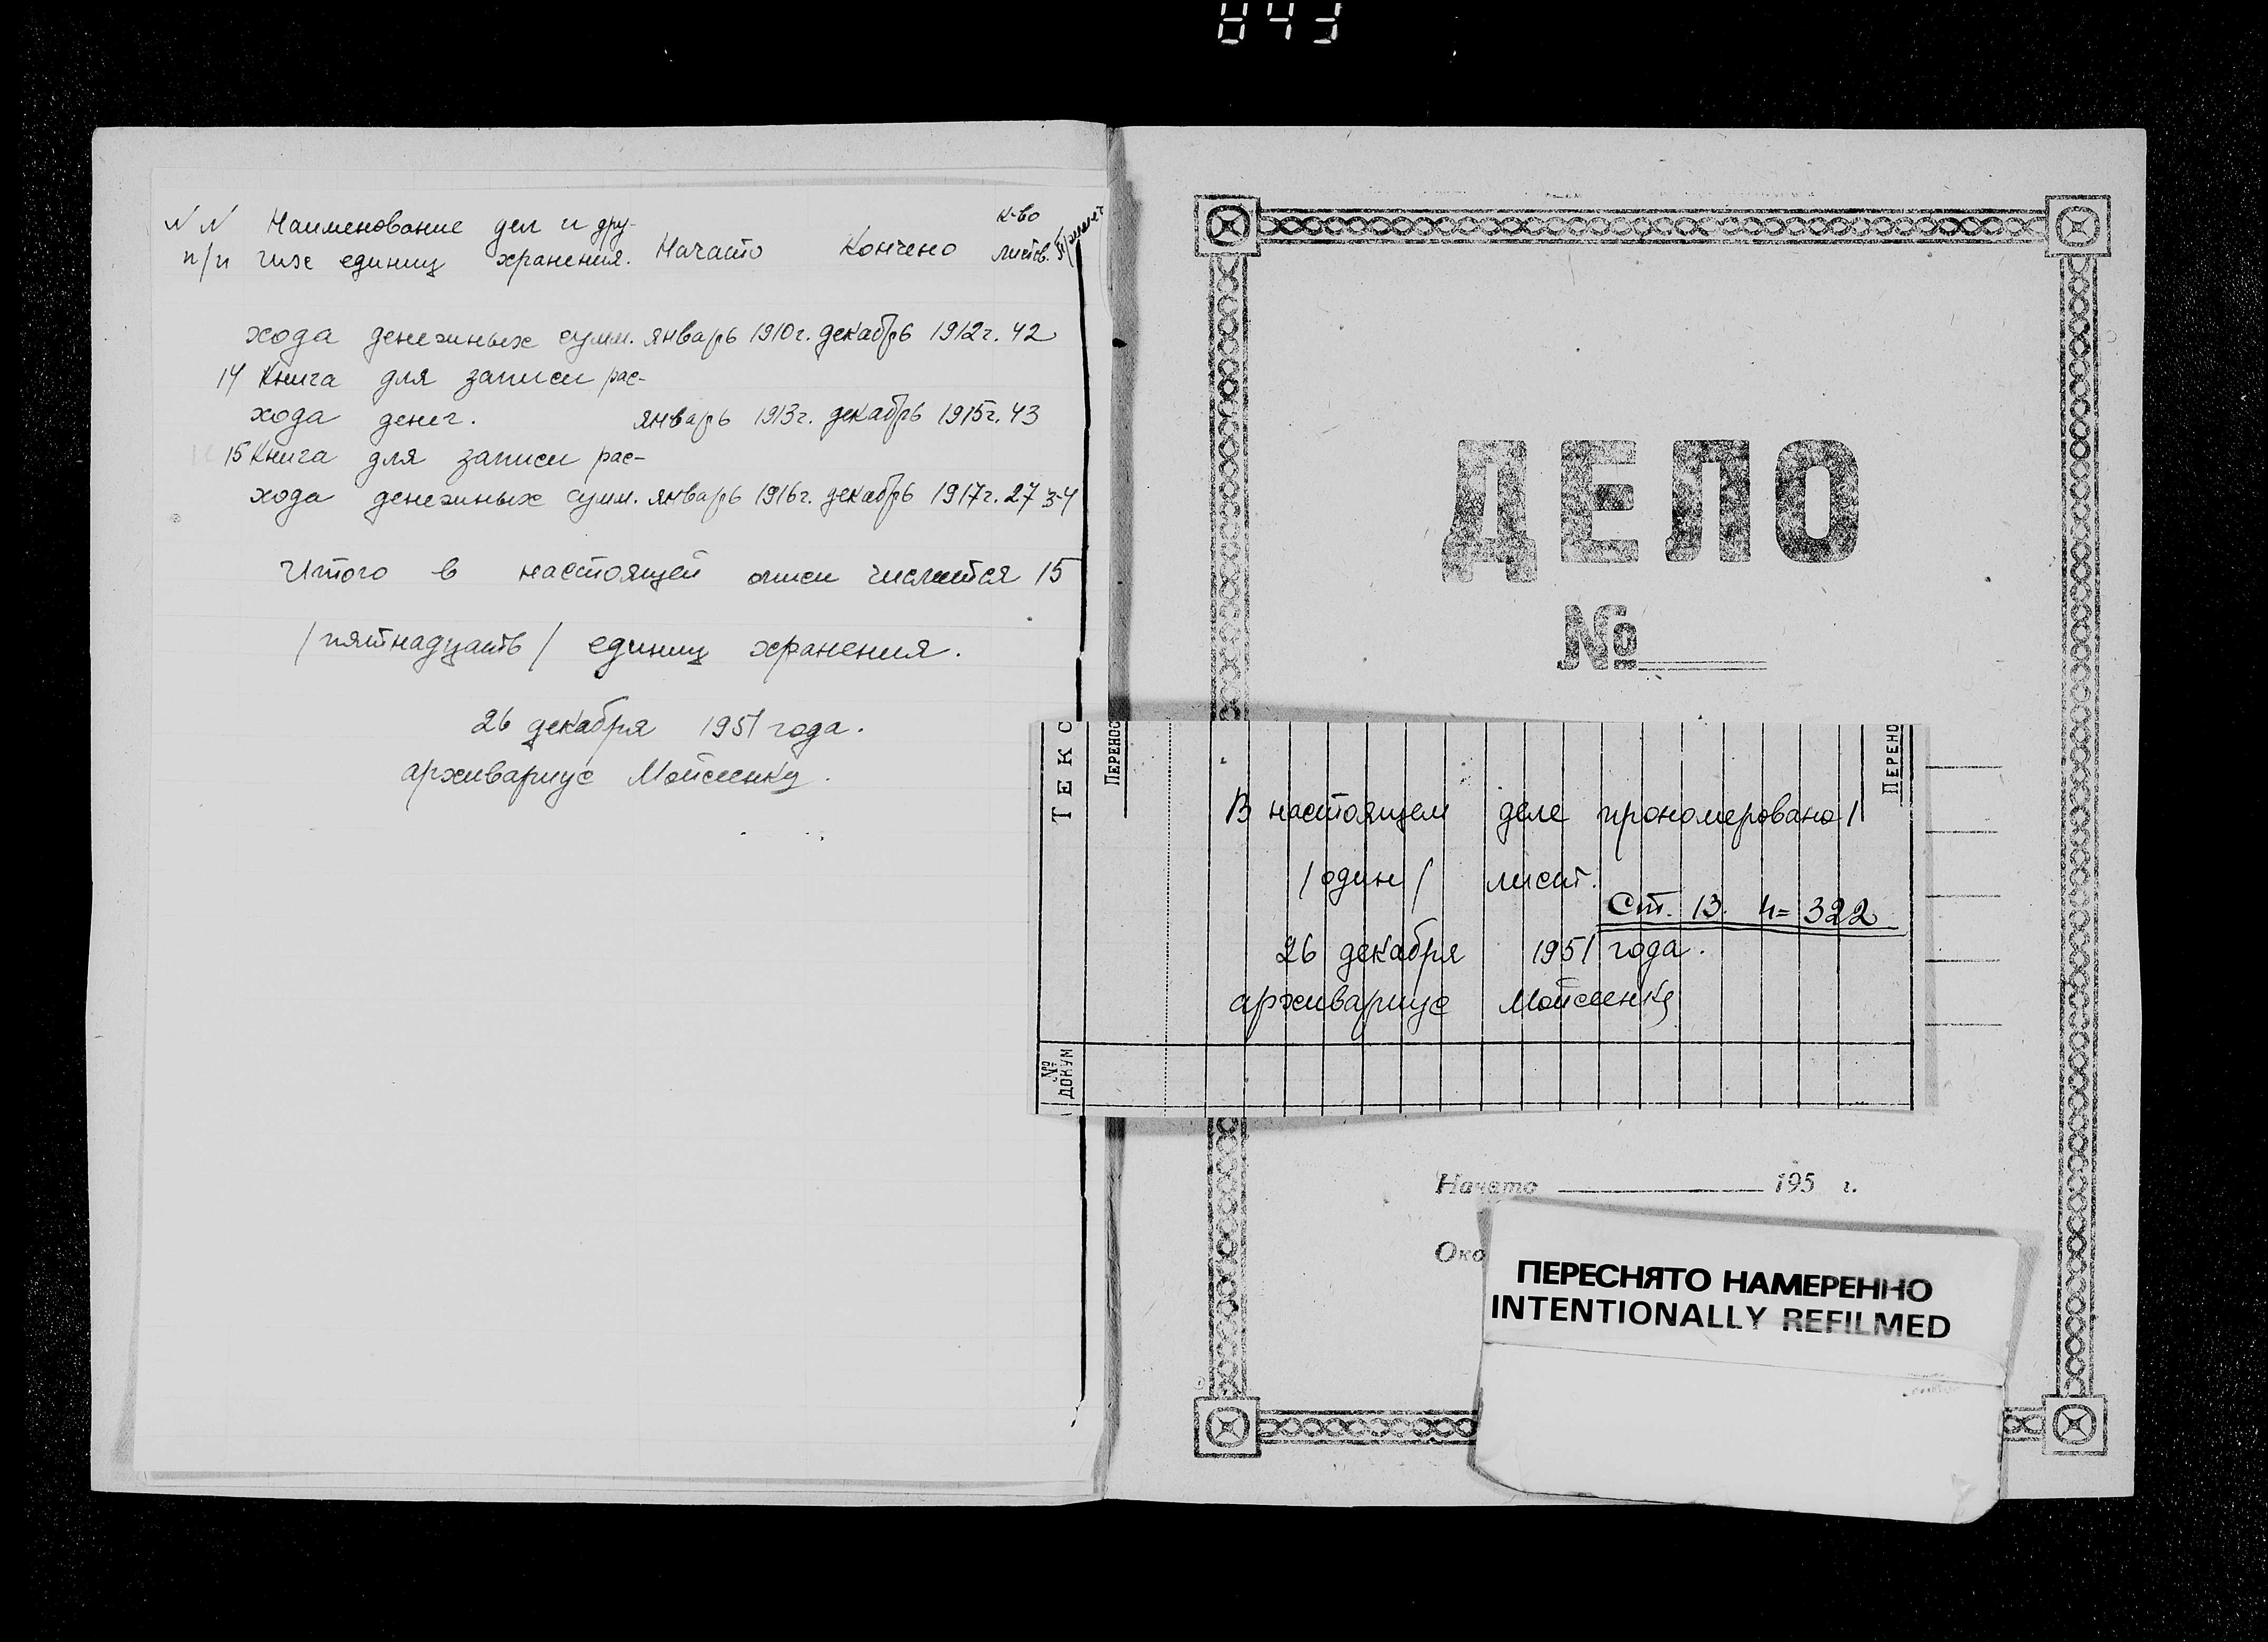 843
N N Наименование дел и дру-
п/п гих единиц хранения. Начато Кончено к-во листов.
хода денежных сумм. январь 1910г. декабрь 1912г. 42
14 Книга для записи рас-
хода денег. январь 1913г. декабрь 1915г. 43
15 Книга для записи рас-
хода денежных сумм. январь 1916г. декабрь 1917г. 27 3-4
Итого в настоящей описи числится 15
/пятнадцать/ единиц хранения.
26 декабря 1951 года.
архивариус Мойсеенко.
ДЕЛО
№
ТЕКС
ПЕРЕНОС
ПЕРЕНО
В настоящем деле прономеровано 1
/один/ лист.
Ст. 13. 4= 322
26 декабря 1951 года.
архивариус Мойсеенко
№№
ДОКУМ
Начато 195 г.
Око
ПЕРЕСНЯТО НАМЕРЕННО
INTENTIONALLY REFILMED